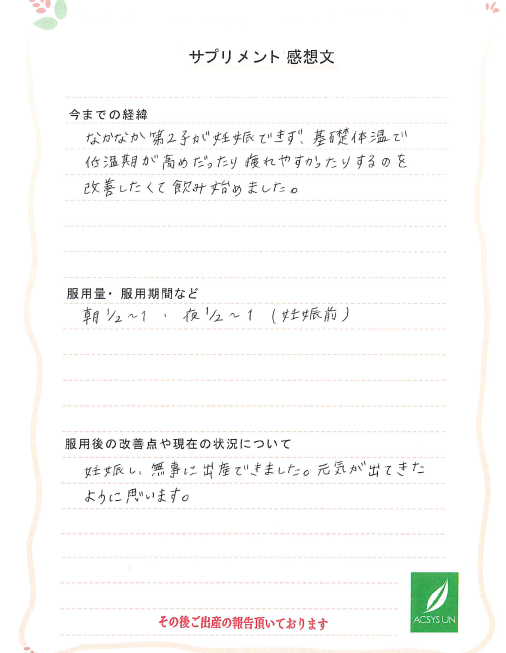 サプリメント 感想文
今までの経緯
なかなか第2子が妊娠できず、基礎体温で
低温期が高めだったり疲れやすかったりするのを
改善したくて飲み始めました。
服用量・服用期間など
朝1/2～1 ・ 夜1/2～1 (妊娠前)
服用後の改善点や現在の状況について
妊娠し、無事に出産できました。元気が出てきた
ように思います。
その後ご出産の報告頂いております
ACSYS UN